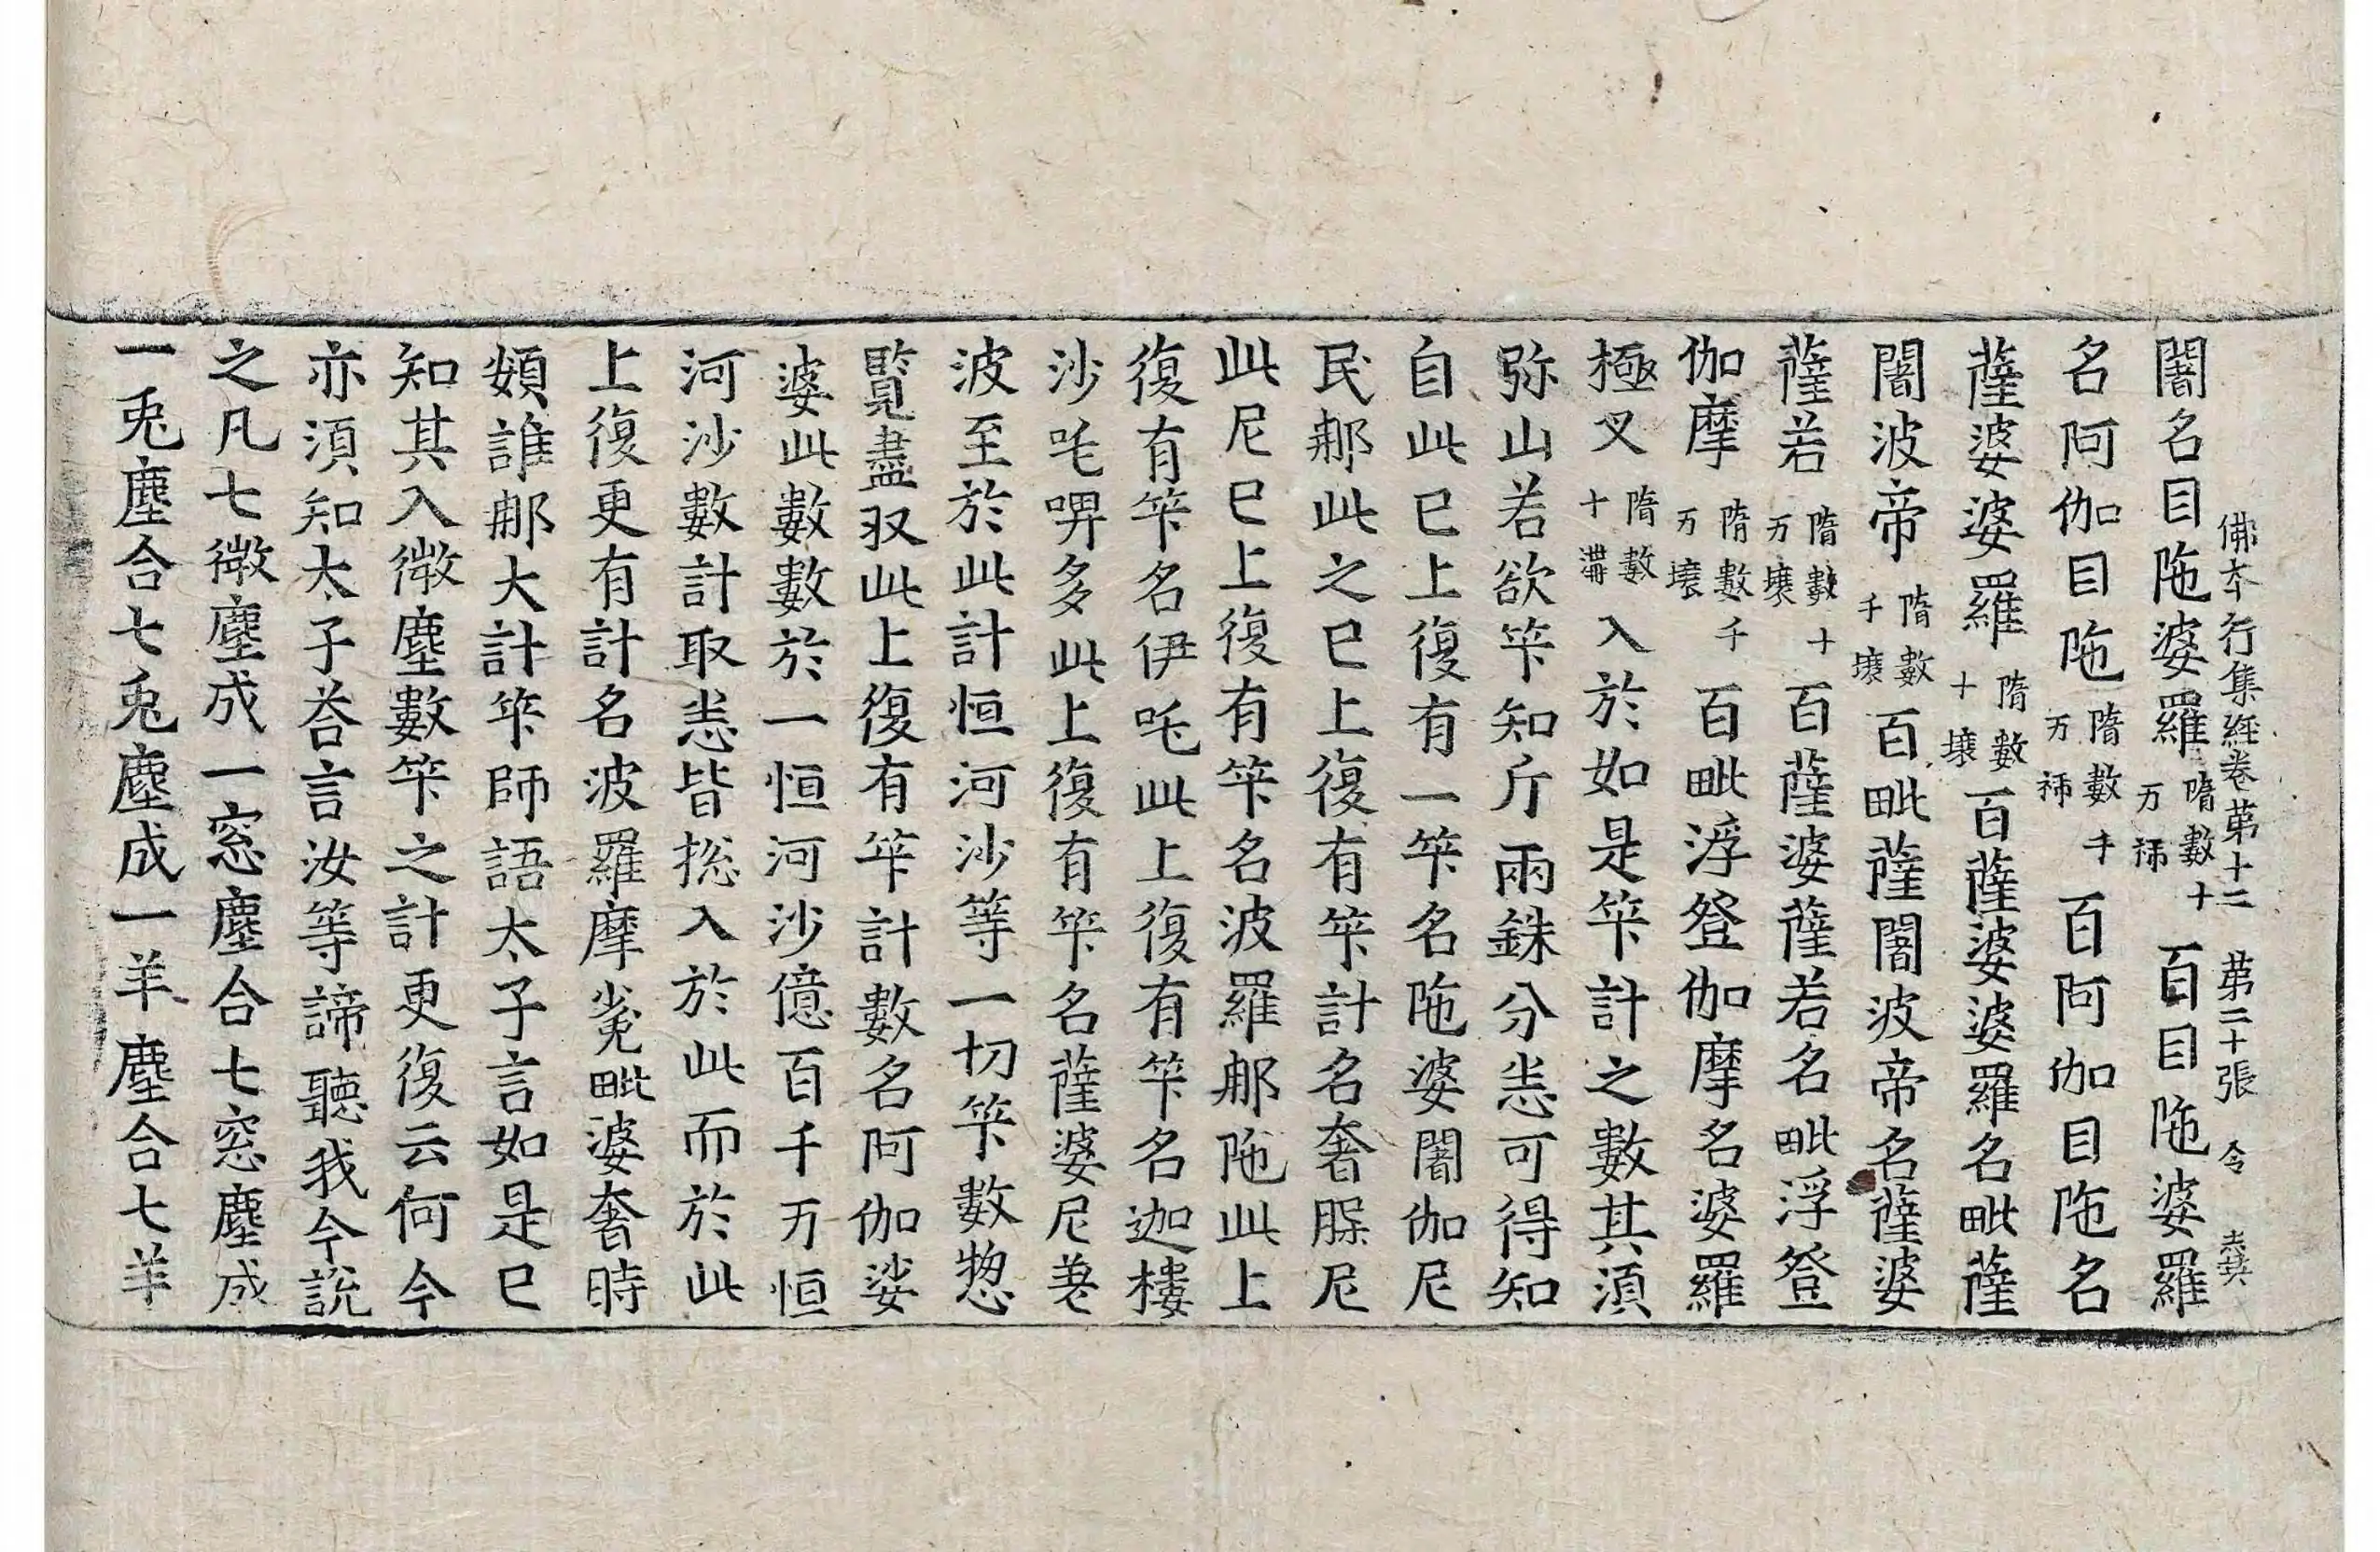 佛本行集經卷第十二 第二十張 令
闍名目陁婆羅隋數十万秭百目陁婆羅
名阿伽目陁隋數千万秭百阿伽目陁名
薩婆婆羅隋數十壤百薩婆婆羅名毗薩
闍波帝隋數千壤百毗薩闍波帝名薩婆
薩若隋數十万壤百薩婆薩若名毗浮登
伽摩隋數千万壤百毗浮登伽摩名婆羅
極叉隋數十溝入於如是筭計之數其湏
弥山若欲筭知斤兩銖分悉可得知
自此已上復有一筭名陁婆闍伽尼
民那此之已上復有筭計名奢𦜕尼
此尼已上復有筭名波羅那陁此上
復有筭名伊吒此上復有筭名迦樓
沙吒啤多此上復有筭名薩婆尼差
波至於此計恒河沙等一切筭數惣
覽盡収此上復有筭計數名阿伽娑
婆此數數於一恒河沙億百千万恒
河沙數計取悉皆揔入於此而於此
上復更有計名波羅摩毗婆奢時
頞誰那大計筭師語太子言如是已
知其入微塵數筭之計更復云何今
亦湏知太子荅言汝等諦聽我今說
之凡七微塵成一窓塵合七窓塵成
一兎塵合七兎塵成一羊塵合七羊